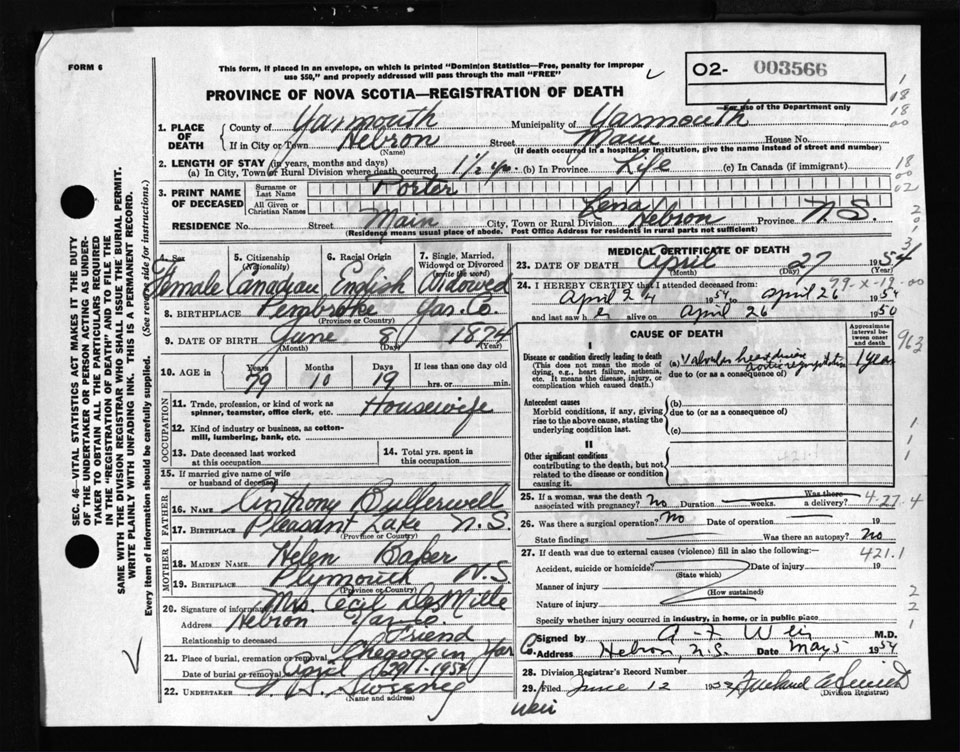 FORM 6
This form, if placed in an envelope, on which is printed "Dominion Statistics—Free, penalty for improper
use $50," and properly addressed will pass through the mail "FREE"
02- 003566
PROVINCE OF NOVA SCOTIA—REGISTRATION OF DEATH
—For use of the Department only
1. PLACE OF DEATH
County of Yarmouth Municipality of Yarmouth
If in City or Town Hebron Street Main House No.
(Name) (If death occurred in a hospital or institution, give the name instead of street and number)
2. LENGTH OF STAY (in years, months and days)
(a) In City, Town or Rural Division where death occurred 1½ yr. (b) In Province Life (c) In Canada (if immigrant)
3. PRINT NAME OF DECEASED
Surname or Last Name Porter
All Given or Christian Names Lena
RESIDENCE No. Street Main City, Town or Rural Division Hebron Province N.S.
(Residence means usual place of abode. Post Office Address for residents in rural parts not sufficient)
4. Sex
Female
5. Citizenship
(Nationality)
Canadian
6. Racial Origin
English
7. Single, Married,
Widowed or Divorced
(write the word)
Widowed
8. BIRTHPLACE Pembroke Yar. Co.
(Province or Country)
9. DATE OF BIRTH June 8 1874
(Month) (Day) (Year)
10. AGE in Years Months Days If less than one day old
79 10 19 hrs. or min.
OCCUPATION
11. Trade, profession, or kind of work as
spinner, teamster, office clerk, etc. Housewife
12. Kind of industry or business, as cotton-
mill, lumbering, bank, etc.
13. Date deceased last worked
at this occupation
14. Total yrs. spent in
this occupation
15. If married give name of wife
or husband of deceased
FATHER
16. NAME Anthony Butlerwell
17. BIRTHPLACE Pleasant Lake N.S.
(Province or Country)
MOTHER
18. MAIDEN NAME Helen Baker
19. BIRTHPLACE Plymouth N.S.
(Province or Country)
20. Signature of informant Mrs. Cecil DeMille
Address Hebron Yar. Co.
Relationship to deceased Friend
21. Place of burial, cremation or removal Chegoggin Yar Co.
Date of burial or removal April 29, 1954
22. UNDERTAKER V. H. Sweeney
(Name and address)
MEDICAL CERTIFICATE OF DEATH
23. DATE OF DEATH April 27 1954
(Month) (Day) (Year)
24. I HEREBY CERTIFY that I attended deceased from: 29-X-19-00
April 24 1954 to April 26 1954
and last saw her alive on April 26 1950
CAUSE OF DEATH
Approximate
interval between
onset
and death
I
Disease or condition directly leading to death
(This does not mean the mode of
dying, e.g., heart failure, asthenia,
etc. It means the disease, injury, or
complication which caused death.)
(a) Valvular heart disease
aortic regurgitation 1 year
due to (or as a consequence of)
Antecedent causes
Morbid conditions, if any, giving
rise to the above cause, stating the
underlying condition last.
(b)
due to (or as a consequence of)
(c)
II
Other significant conditions
contributing to the death, but not
related to the disease or condition
causing it.
421.1
25. If a woman, was the death
associated with pregnancy? No Duration weeks. Was there a delivery? 4-27-4
26. Was there a surgical operation? No Date of operation 19
State findings Was there an autopsy? No
27. If death was due to external causes (violence) fill in also the following:— 421.1
Accident, suicide or homicide? Date of injury 19
(State which)
Manner of injury
(How sustained)
Nature of injury
Specify whether injury occurred in industry, in home, or in public place
Signed by A F Weir M.D.
Address Hebron, N.S. Date May 5 1954
28. Division Registrar's Record Number
29. Filed June 12 195
(Division Registrar)
Weir
SEC. 46—VITAL STATISTICS ACT MAKES IT THE DUTY
OF THE UNDERTAKER OR PERSON ACTING AS UNDER-
TAKER TO OBTAIN ALL THE PARTICULARS REQUIRED
IN THE "REGISTRATION OF DEATH" AND TO FILE THE
SAME WITH THE DIVISION REGISTRAR WHO SHALL ISSUE THE BURIAL PERMIT.
WRITE PLAINLY WITH UNFADING INK. THIS IS A PERMANENT RECORD.
Every item of information should be carefully supplied. (See reverse side for instructions.)
1
18
18
00
18
00
02
963